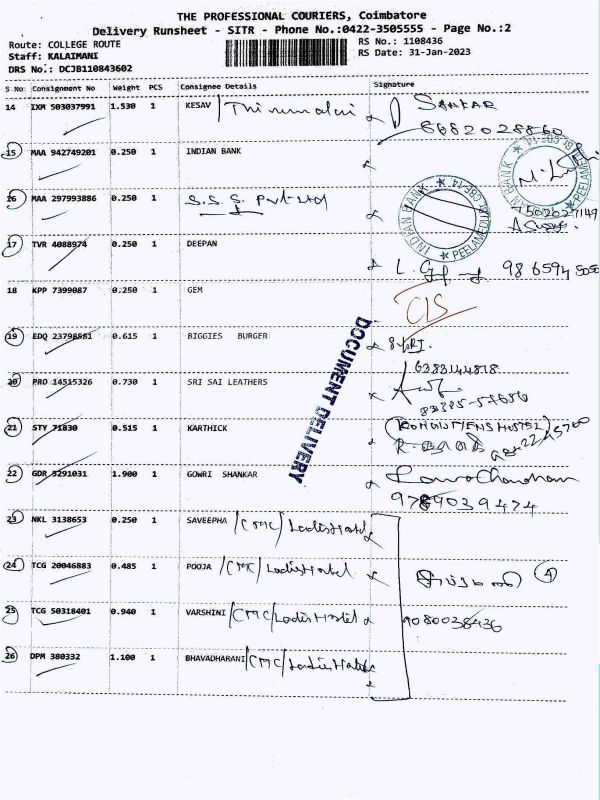 THE PROFESSIONAL COURIERS, Coimbatore
Delivery Runsheet - SITR - Phone No.:0422-3505555 - Page No.:2
Route: COLLEGE ROUTE
Staff: KALAIMANI
DRS No.: DCJB110843602
RS No.: 1108436
RS Date: 31-Jan-2023
S No Consignment No Weight PCS Consignee Details Signature
14 IXM 503037991 1.530 1 KESAV / Thirumalai SANKAR
15 MAA 942749201 0.250 1 INDIAN BANK
16 MAA 297993886 0.250 1 S.S.S. Pvt Ltd
INDIAN BANK
PEELAMEDU
17 TVR 4088974 0.250 1 DEEPAN
18 KPP 7399087 0.250 1 GEM CIS
19 EDQ 23798581 0.615 1 BIGGIES BURGER
6383144818
20 PRO 14515326 0.730 1 SRI SAI LEATHERS
21 STY 71830 0.515 1 KARTHICK
22 GDR 5291031 1.900 1 GOWRI SHANKAR
9789039474
DOCUMENT DELIVERY
23 NKL 3138653 0.250 1 SAVEEPHA /CMC/Ladies Hostel
24 TCG 20046883 0.485 1 POOJA /CMC/Ladies Hostel 4
25 TCG 50318401 0.940 1 VARSHINI /CMC/Ladies Hostel 9080036436
26 DPM 380332 1.100 1 BHAVADHARANI /CMC/Ladies Hostel